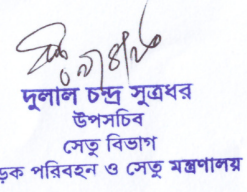 দুলাল চন্দ্র সূত্রধর
উপসচিব
সেতু বিভাগ
ড়ক পরিবহন ও সেতু মন্ত্রণালয়